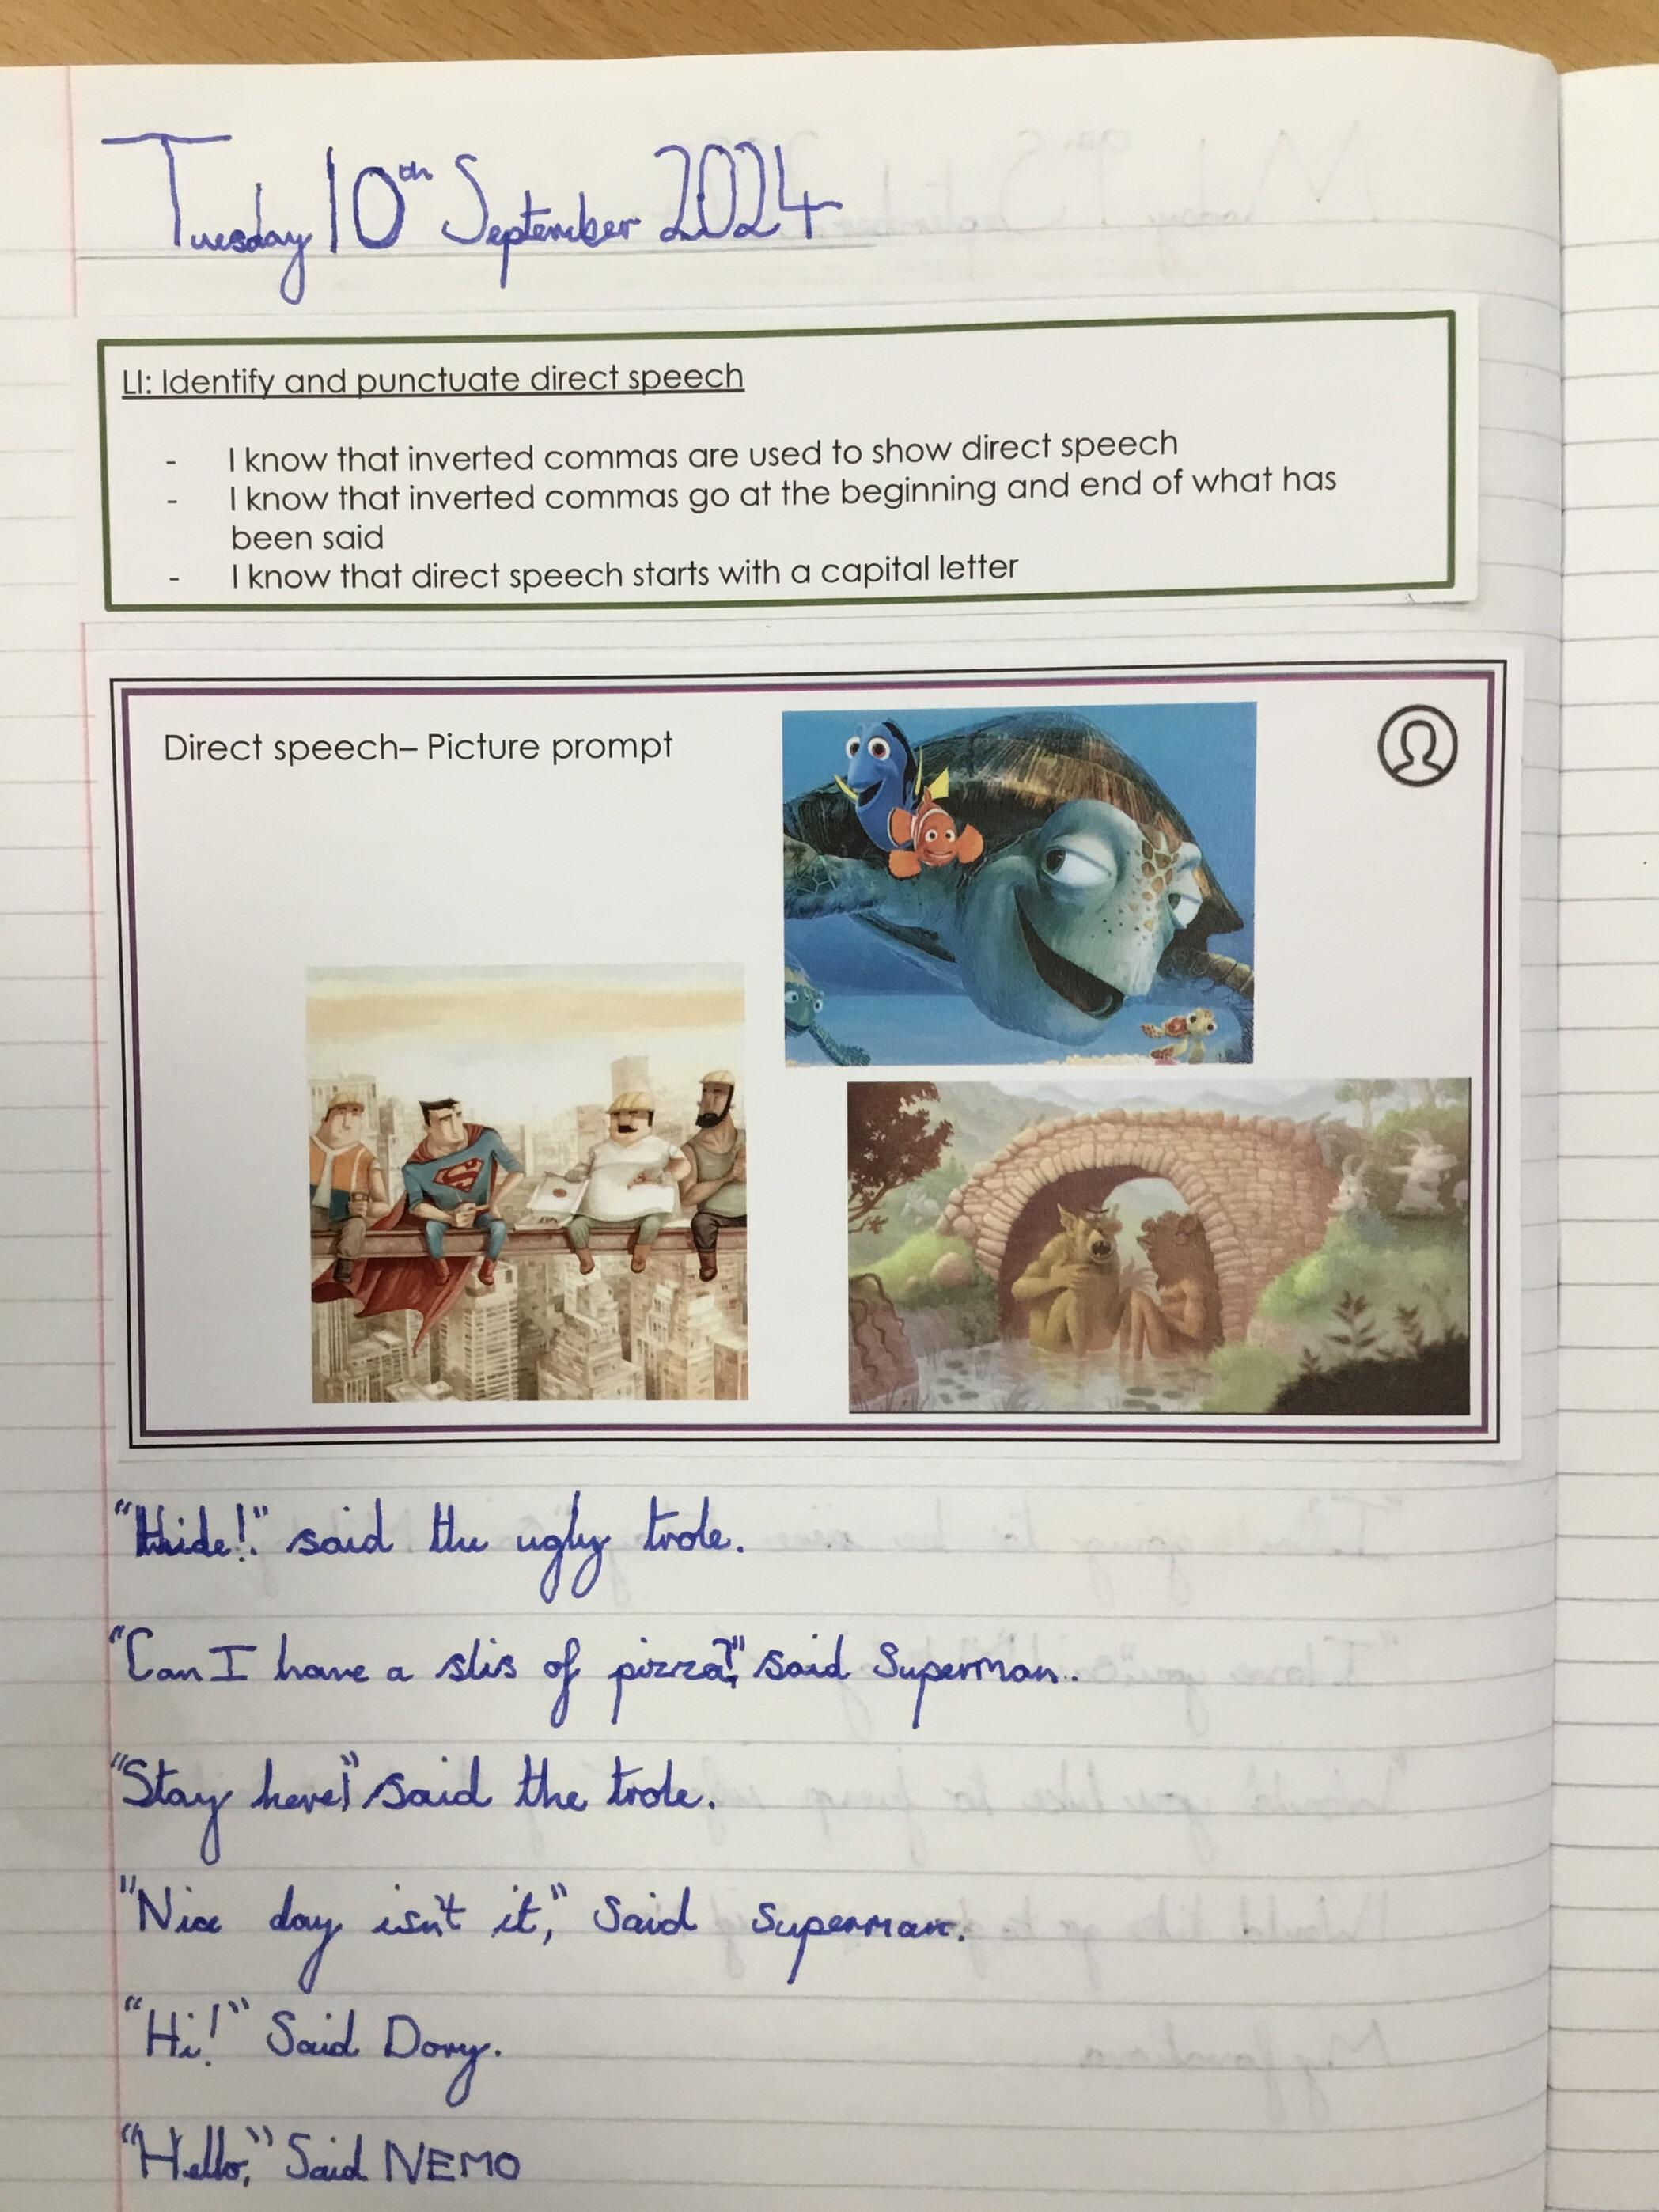 Tuesday 10th September 2024
LI: Identify and punctuate direct speech
- I know that inverted commas are used to show direct speech
- I know that inverted commas go at the beginning and end of what has
been said
- I know that direct speech starts with a capital letter
Direct speech– Picture prompt
"Hide!" said the ugly trole.
"Can I have a slis of pizza?" said Superman.
"Stay here!" said the trole.
"Nice day isn't it," Said Superman.
"Hi!" Said Dory.
"Hello," Said NEMO